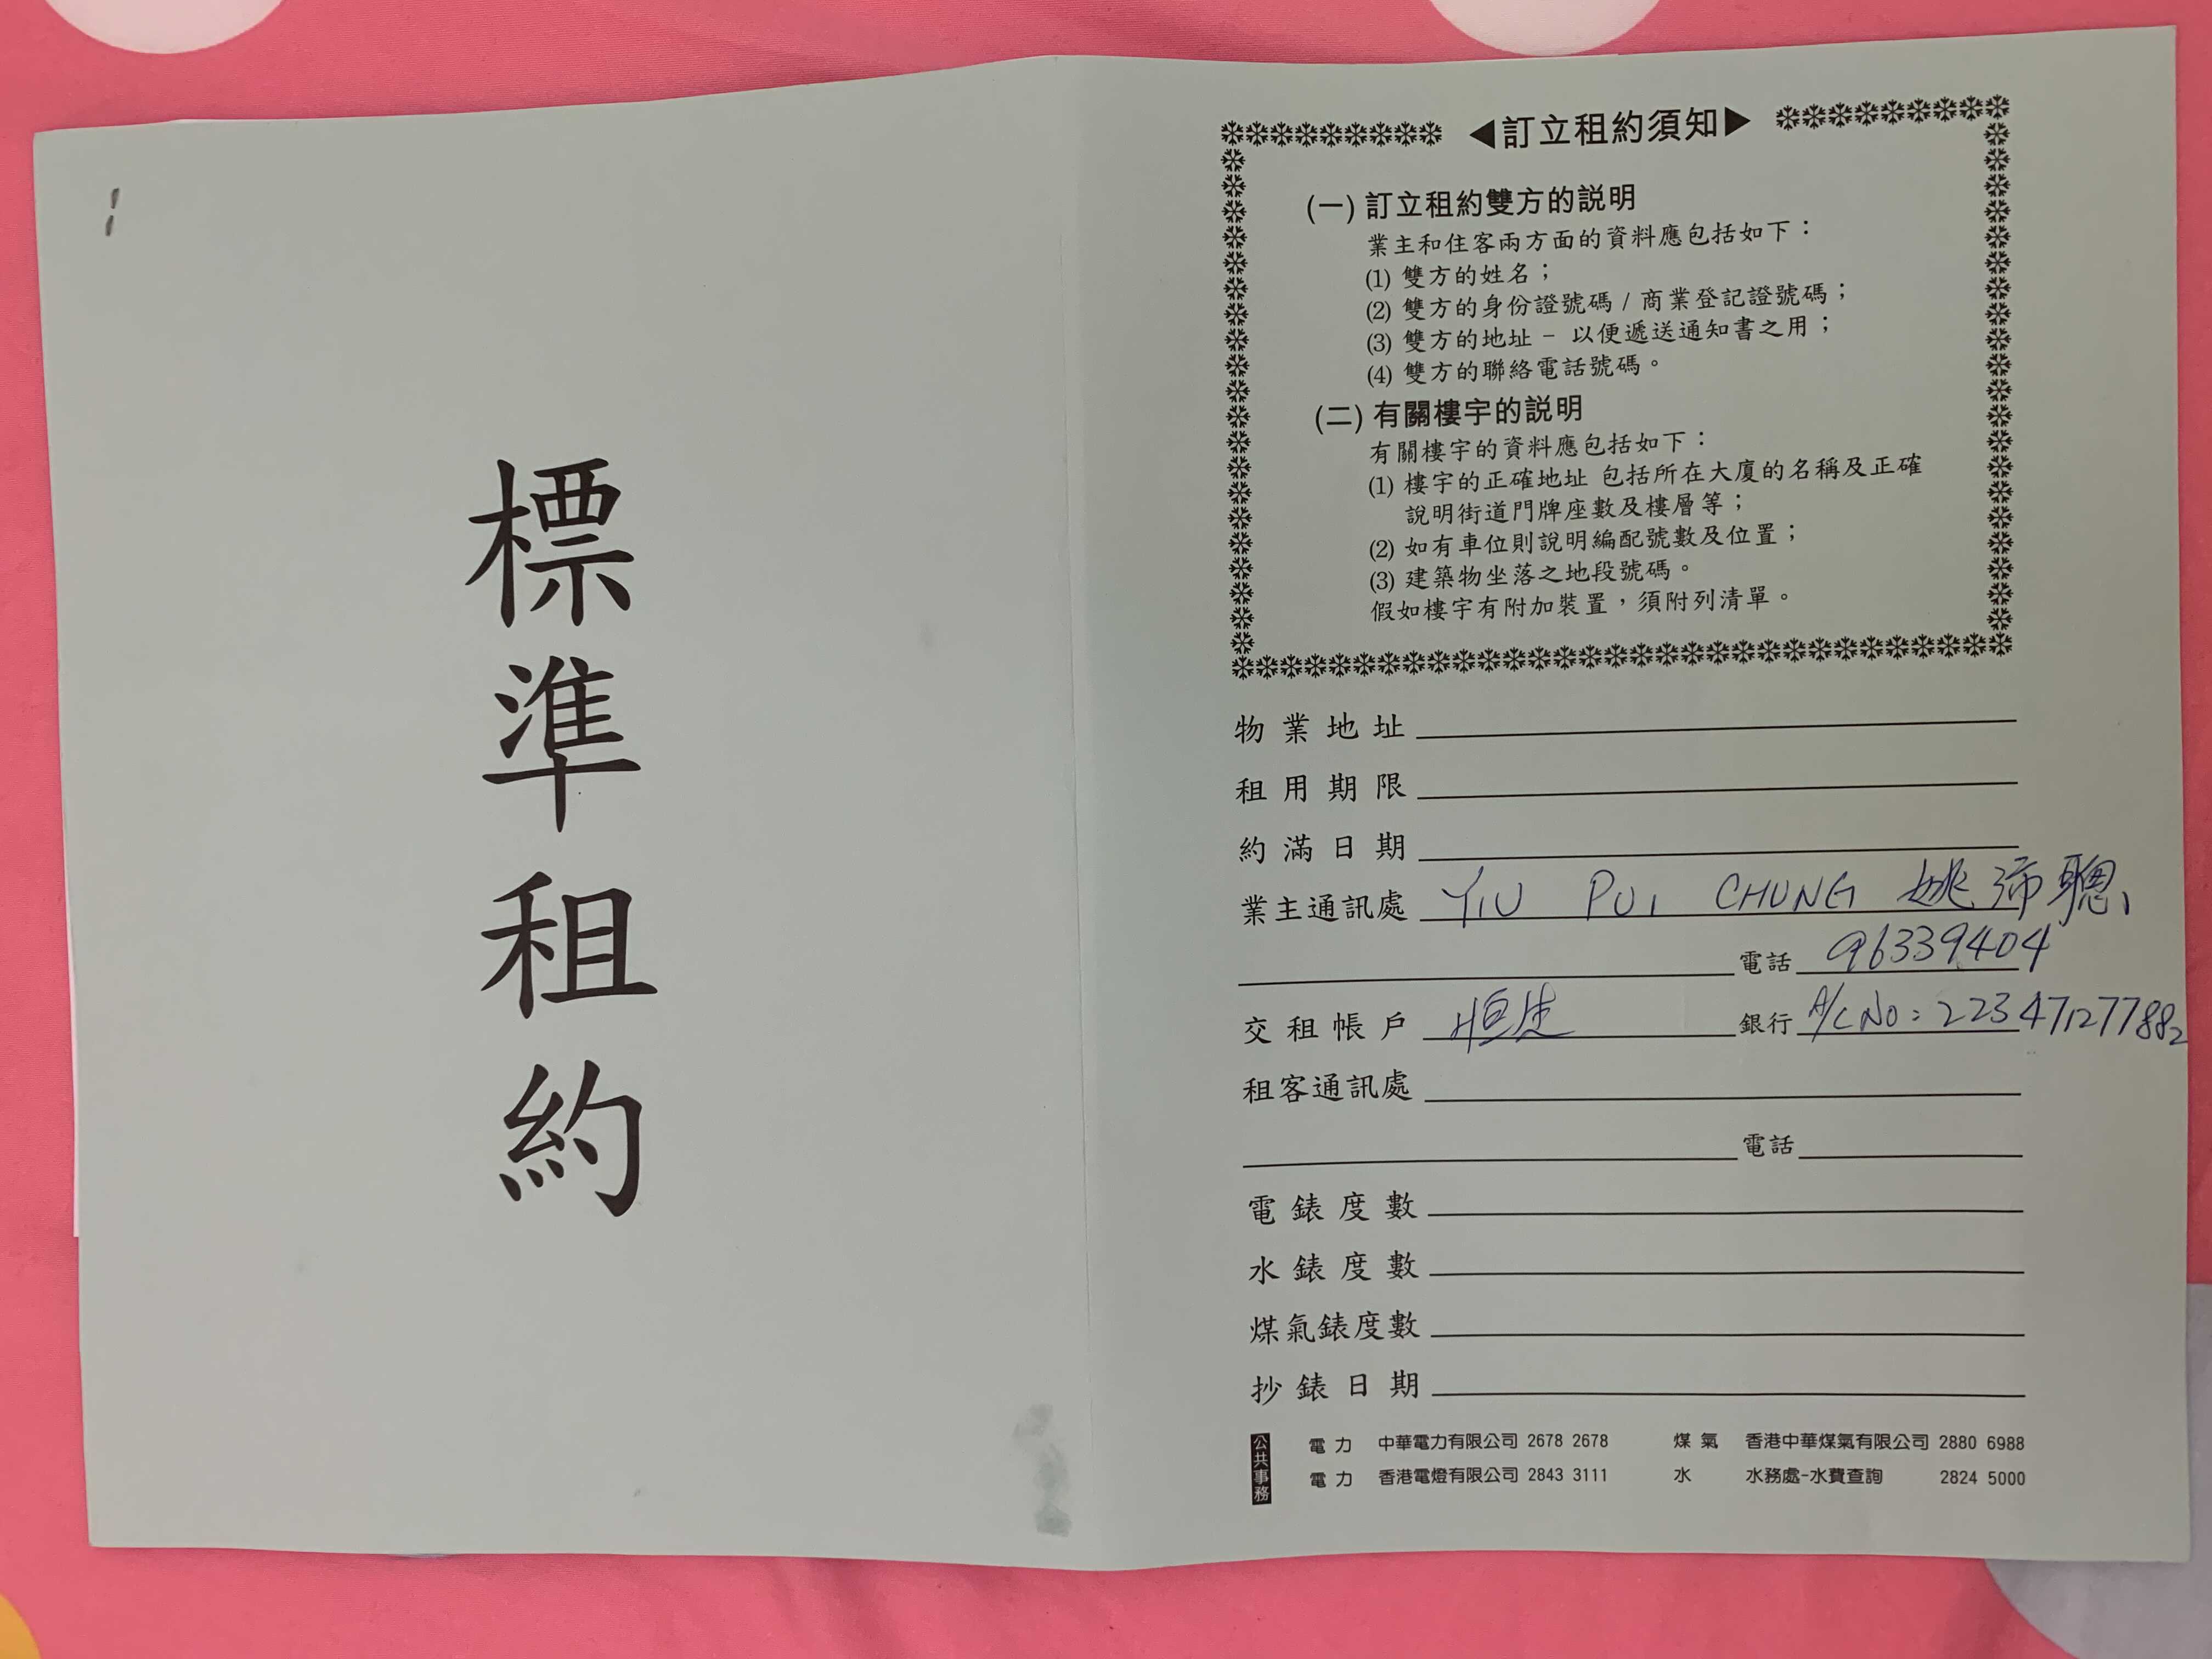 標準租約
◀訂立租約須知▶
(一) 訂立租約雙方的說明
業主和住客兩方面的資料應包括如下：
(1) 雙方的姓名；
(2) 雙方的身份證號碼 / 商業登記證號碼；
(3) 雙方的地址 － 以便遞送通知書之用；
(4) 雙方的聯絡電話號碼。
(二) 有關樓宇的說明
有關樓宇的資料應包括如下：
(1) 樓宇的正確地址 包括所在大廈的名稱及正確
說明街道門牌座數及樓層等；
(2) 如有車位則說明編配號數及位置；
(3) 建築物坐落之地段號碼。
假如樓宇有附加裝置，須附列清單。
物業地址
租用期限
約滿日期
業主通訊處 YIU PUI CHUNG 姚沛聰
電話 96339404
交租帳戶 恒生 銀行 A/C No: 223471277882
租客通訊處
電話
電錶度數
水錶度數
煤氣錶度數
抄錶日期
公共事務
電力 中華電力有限公司 2678 2678 煤氣 香港中華煤氣有限公司 2880 6988
電力 香港電燈有限公司 2843 3111 水 水務處-水費查詢 2824 5000